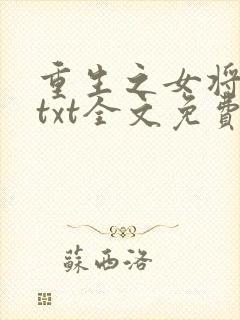 重生之女将
txt全文免費
蘇西洛